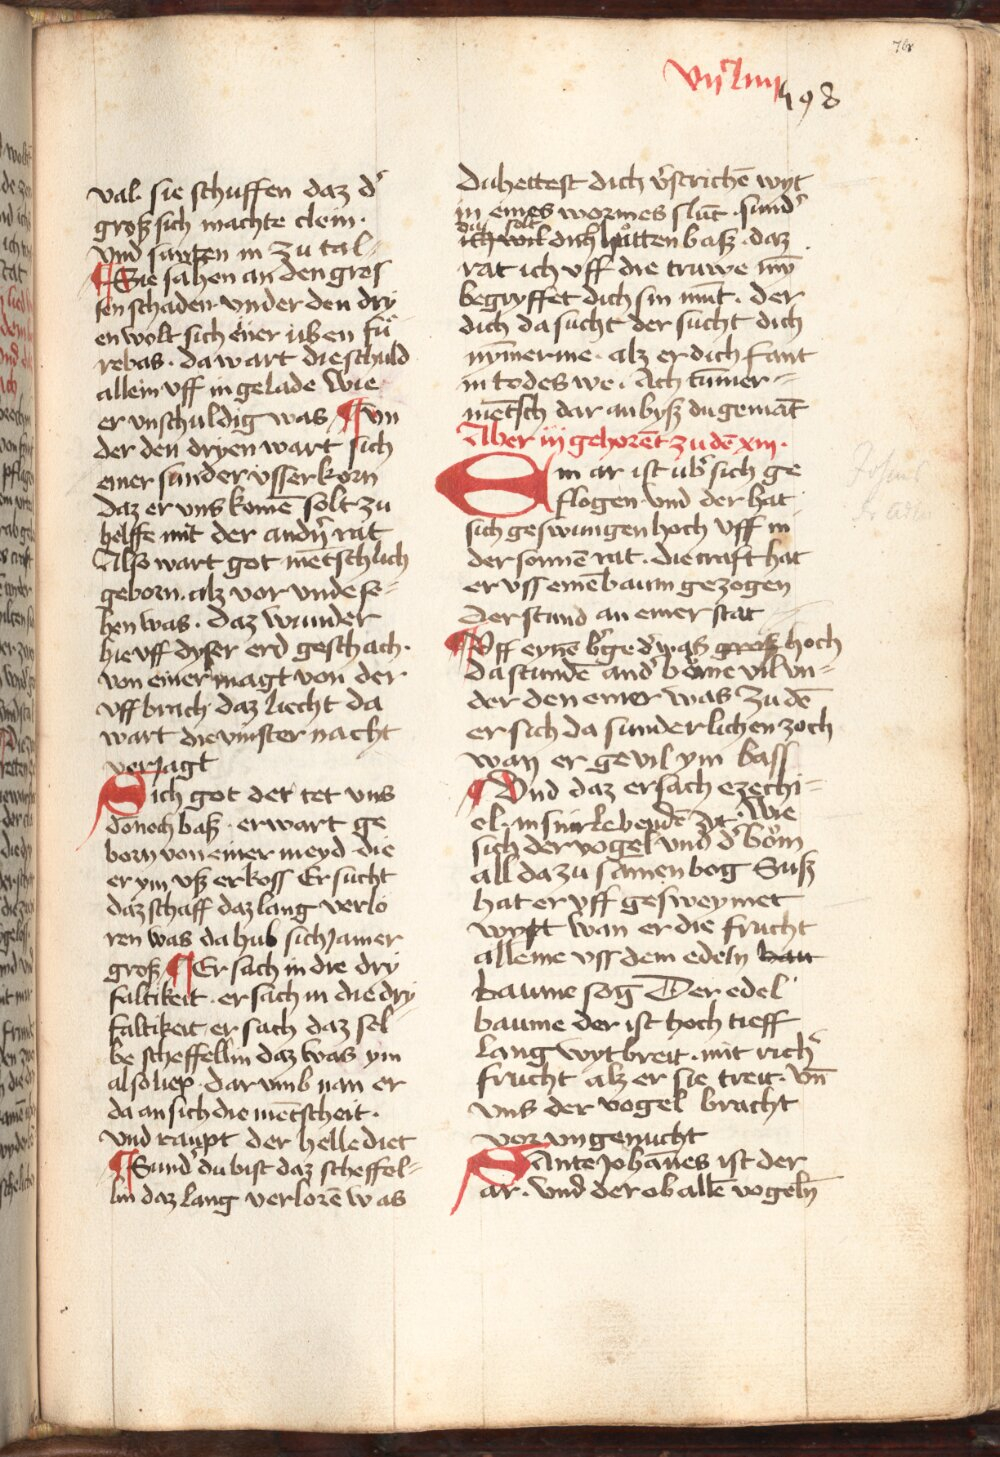 val. sie schuffen daz d'
groß sich machte clein.
Vnd santen in zu tal
¶ Sie sahen an den gros
sen schaden. vnder den dry
en wolt sich einer uben fu
rebas. da wart die schuld
allein vff in gelade Wie
er vnschuldig was ¶ Vn
der den dryen wart sich
einer sunder vsserkorn
daz er vns komē solt zu
helffe mit der andn̄ rat
Also wart got mētschlich
geborn. alz vor vnde se-
hen was. daz wunder
hie vff dyser erd geschach.
von einer magt von der
vff brach daz liecht da
wart die vinster nacht
verjagt
Sich got der tet vns
donoch baß. er wart ge
born von einer meyd die
er ym vß erkoss Er sucht
daz schaff daz lang verlo
ren was da hub sich jamer
groß ¶ Er sach in die dry
faltikeit. er sach in die dry
faltikeit er sach daz sel
be scheffellin daz was ym
also liep. dar vmb nan er
da an sich die mētscheit.
vnd raupt der helle diet
¶ Sund' du bist daz scheffel-
lin daz lang verlorē was
du hettest dich v'strichē wyt
in eines wormes slūt. sund'
dich baß. daz
rat ich vff die truwe myn̄
begryffet dich sin mūt. der
dich da sucht der sucht dich
nȳmer me. alz er dich fant
in todes we. Ach tūmer
mētsch dar an byß du gemāt
Aber iij gehorēt zu dē xiii.
Ein ar ist ub' sich ge
flogen vnd der hat
sich geswungen hoch vff in
der sonnē rat. die craft hat
er vss einē baum gezogen
der stund an einer stat
¶ Vff eynē b'ge d' was groß hoch
da stundē and' böme vil vn-
der den einer was zu dē
er sich da sunderlichen zoch
wan er gevil ym bass
¶ Vnd daz ersach ezechi-
el. in sinr lebendē zyt. Wie
sich der vogel vnd d' bom
all da zu samen bog Suß
hat er vff gesweymet
wyt wan er die frucht
alleine vss dem edeln bau
baume sog Der edel
baume der ist hoch tieff
lang wyt breit. mit rich'
frucht alz er sie treit. vn̄
vns der vogel bracht
vor vngenucht
Sante johānes ist der
ar. vnd der ob allē vogeln̄